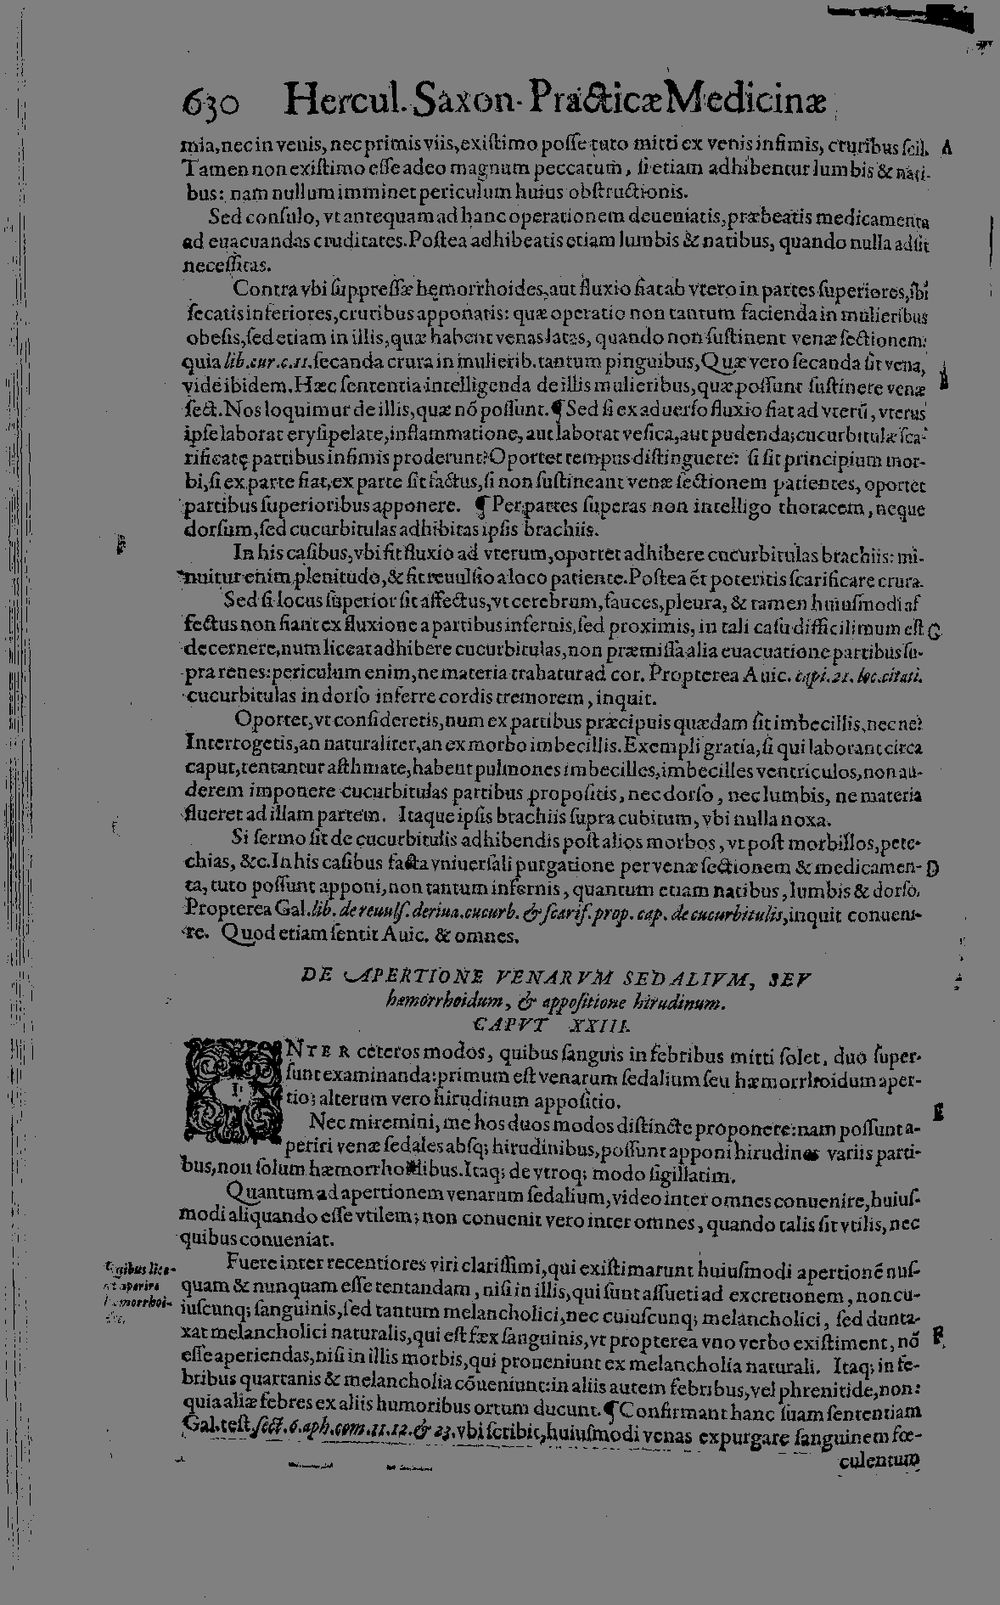 630 Hercul. Saxon. Practicæ Medicinæ
mia, nec in venis, nec primis viis, existimo posse tuto mitti ex venis infimis, cruribus scil. A
Tamen non existimo esse adeo magnum peccatum, si etiam adhibentur lumbis & nati-
bus: nam nullum imminet periculum huius obstructionis.
Sed consulo, vt antequam ad hanc operationem deueniatis, præbeatis medicamenta
ad euacuandas cruditates. Postea adhibeatis etiam lumbis & natibus, quando nulla adsit
necessitas.
Contra vbi suppressæ hęmorrhoides, aut fluxio fiat ab vtero in partes superiores, ibi
secatis inferiores, cruribus apponatis: quæ operatio non tantum facienda in mulieribus
obesis, sed etiam in illis, quæ habent venas latas, quando non sustinent venæ sectionem:
quia lib. cur. c. 11. secanda crura in mulierib. tantum pinguibus, Quæ vero secanda sit vena,
vide ibidem. Hæc sententia intelligenda de illis mulieribus, quæ possunt sustinere venæ
sect. Nos loquimur de illis, quæ nō possunt. ¶ Sed si ex aduerso fluxio fiat ad vterū, vterus
ipse laborat erysipelate, inflammatione, aut laborat vesica, aut pudenda; cucurbitulæ sca-
rificatę partibus infimis proderunt? Oportet tempus distinguere: si sit principium mor-
bi, si ex parte fiat, ex parte sit factus, si non sustineant venæ sectionem patientes, oportet
partibus superioribus apponere. ¶ Per partes superas non intelligo thoracem, neque
dorsum, sed cucurbitulas adhibitas ipsis brachiis.
In his casibus, vbi fit fluxio ad vterum, oportet adhibere cucurbitulas brachiis: mi-
nuitur enim plenitudo, & fit reuulsio a loco patiente. Postea ēt poteritis scarificare crura.
Sed si locus superior sit affectus, vt cerebrum, fauces, pleura, & tamen huiusmodi af
fectus non fiant ex fluxione a partibus infernis, sed proximis, in tali casu difficilimum est C
decernere, num liceat adhibere cucurbitulas, non præmissa alia euacuatione partibus su-
pra renes: periculum enim, ne materia trahatur ad cor. Propterea Auic. capi. 21. loc. citati.
cucurbitulas in dorso inferre cordis tremorem, inquit.
Oportet, vt consideretis, num ex partibus præcipuis quædam sit imbecillis, nec ne?
Interrogetis, an naturaliter, an ex morbo imbecillis. Exempli gratia, si qui laborant circa
caput, tentantur asthmate, habent pulmones imbecilles, imbecilles ventriculos, non au-
derem imponere cucurbitulas partibus propositis, nec dorso, nec lumbis, ne materia
flueret ad illam partem. Itaque ipsis brachiis supra cubitum, vbi nulla noxa.
Si sermo sit de cucurbitulis adhibendis post alios morbos, vt post morbillos, pete-
chias, &c. In his casibus facta vniuersali purgatione per venæ sectionem & medicamen- D
ta, tuto possunt apponi, non tantum infernis, quantum etiam natibus, lumbis & dorso.
Propterea Gal. lib. de reuuls. deriua. cucurb. & scarif. prop. cap. de cucurbitulis, inquit conueni-
re. Quod etiam sentit Auic. & omnes.
DE APERTIONE VENARVM SEDALIVM, SEV
hæmorrhoidum, & appositione hirudinum.
CAPVT XXIII.
INTER ceteros modos, quibus sanguis in febribus mitti solet, duo super-
sunt examinanda: primum est venarum sedalium seu hæmorrhoidum aper-
tio; alterum vero hirudinum appositio. E
Nec miremini, me hos duos modos distincte proponere: nam possunt a-
periri venæ sedales absq; hirudinibus, possunt apponi hirudines variis parti-
bus, non solum hæmorrhoidibus. Itaq; de vtroq; modo sigillatim.
Quantum ad apertionem venarum sedalium, video inter omnes conuenire, huius-
modi aliquando esse vtilem; non conuenit vero inter omnes, quando talis sit vtilis, nec
quibus conueniat.
Quibus lice-
at aperire
hæmorrhoi-
des.
Fuere inter recentiores viri clarissimi, qui existimarunt huiusmodi apertionē nus-
quam & nunquam esse tentandam, nisi in illis, qui sunt assueti ad excretionem, non cu-
iuscunq; sanguinis, sed tantum melancholici, nec cuiuscunq; melancholici, sed dunta-
xat melancholici naturalis, qui est fæx sanguinis, vt propterea vno verbo existiment, nō F
esse aperiendas, nisi in illis morbis, qui proueniunt ex melancholia naturali. Itaq; in fe-
bribus quartanis & melancholia cōueniunt: in aliis autem febribus, vel phrenitide, non:
quia aliæ febres ex aliis humoribus ortum ducunt. ¶ Confirmant hanc suam sententiam
Gal. test. sect. 6. aph. com. 11. 12. & 23. vbi scribit, huiusmodi venas expurgare sanguinem fœ-
culentum